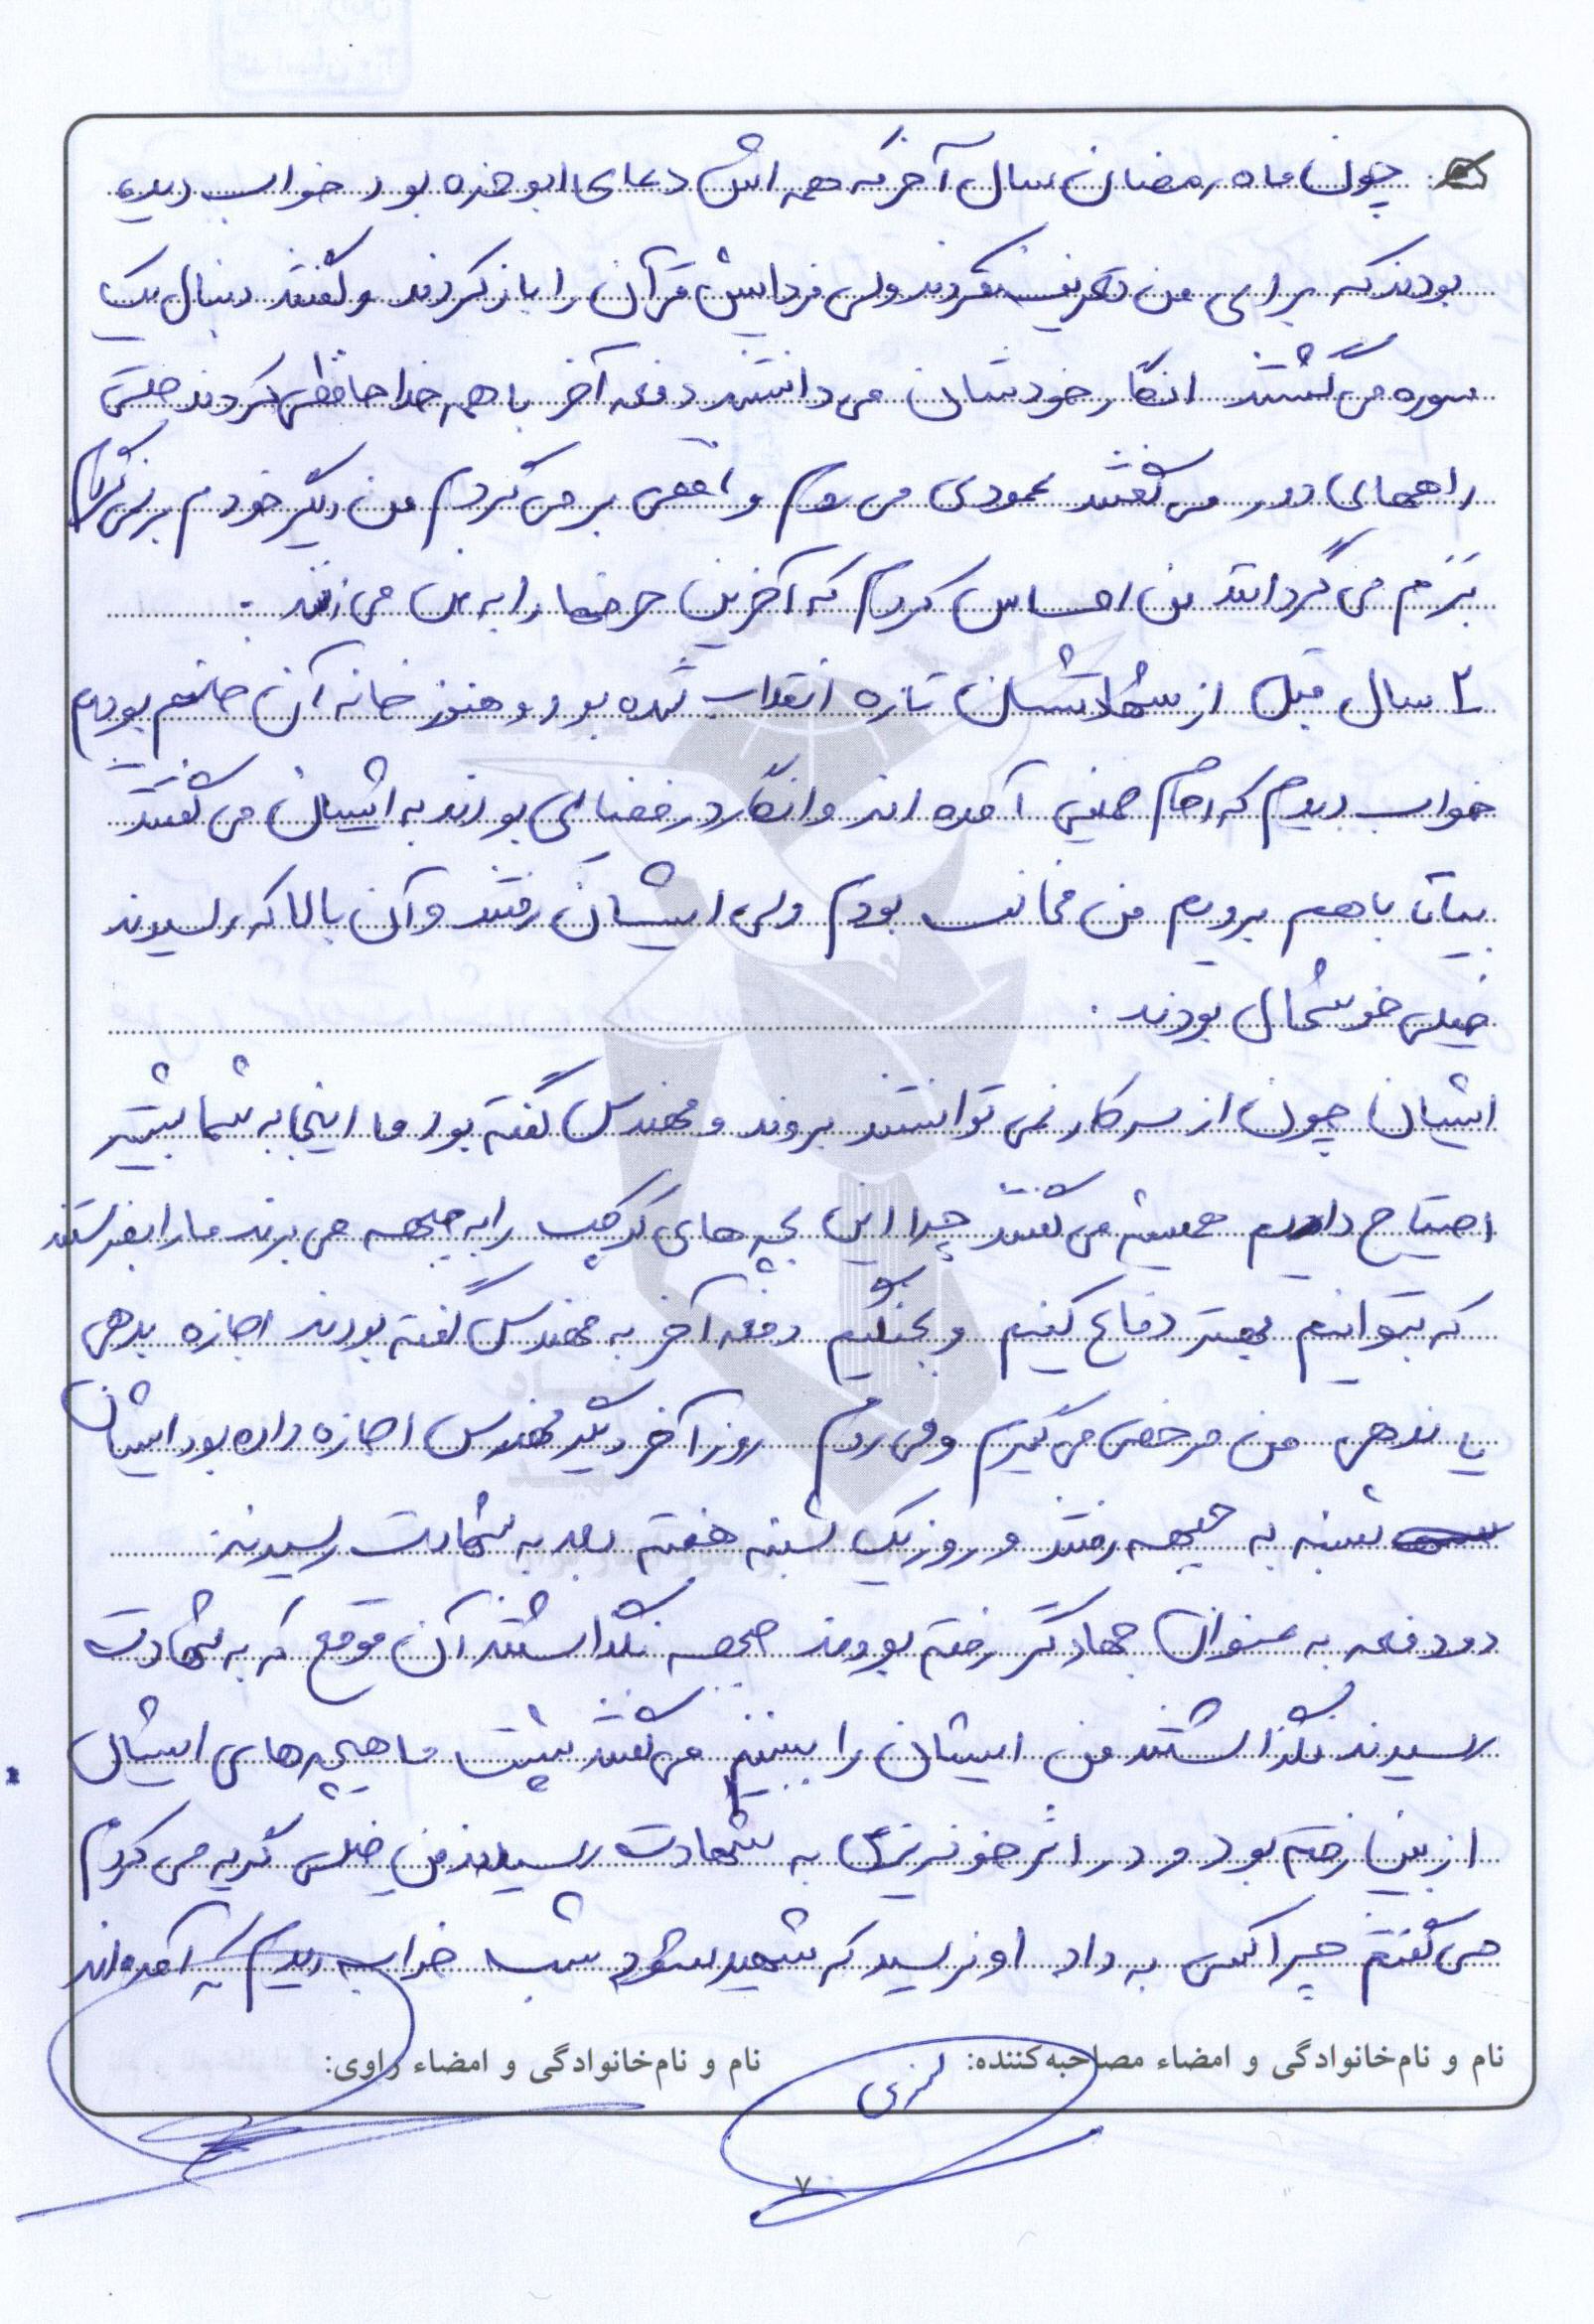 چون ماه رمضان سال آخر که همه اش دعای ابوحمزه بود خواب دیده
بودند که برای من تعریف نکردند ولی فردایش قرآن را باز کردند و گفتند دنبال یک
سوره می گشتند انگار خودشان می دانستند دفعه آخر با همه خداحافظی کردند حتی
راههای دور می گفتند عمودی می روم و افقی برمی گردم من دیگر خودم برنمی گردم
می گردانند من احساس کردم که آخرین حرفها را به من می زنند .
۲ سال قبل از شهادتشان تازه انقلاب شده بود و هنوز خانه آن خانم بودیم
خواب دیدم که امام خمینی آمده اند و انگار در فضایی بودند به ایشان می گفتند
بیا باهم برویم من مخالف بودم ولی ایشان رفتند و آن بالا که رسیدند
خیلی خوشحال بودند .
ایشان چون از سر کار نمی توانستند بروند و مهندس گفته بود ما اینجا به شما بیشتر
احتیاج داریم همیشه می گفتند چرا این بچه های کوچک را به جبهه می برند ما را بفرستند
که بتوانیم بهتر دفاع کنیم و بجنگیم دفعه آخر به مهندس گفته بودند اجازه بدهی
یا ندهی من مرخصی می گیرم و می روم روز آخر دیگر مهندس اجازه داده بود ایشان
شنبه به جبهه رفتند و روز یک شنبه هفته بعد به شهادت رسیدند.
دو دفعه به عنوان جهادگر رفته بودند جبهه نگذاشتند آن موقع که به شهادت
رسیدند نگذاشتند من ایشان را ببینم می گفتند پشت ماهیچه های ایشان
از بین رفته بود و در اثر خونریزی به شهادت رسیدند من خیلی گریه می کردم
می گفتم چرا کسی به داد او نرسید که شهید شود شب خواب دیدم که آمده اند
نام و نام‌خانوادگی و امضاء مصاحبه‌کننده: نام و نام‌خانوادگی و امضاء راوی:
۷